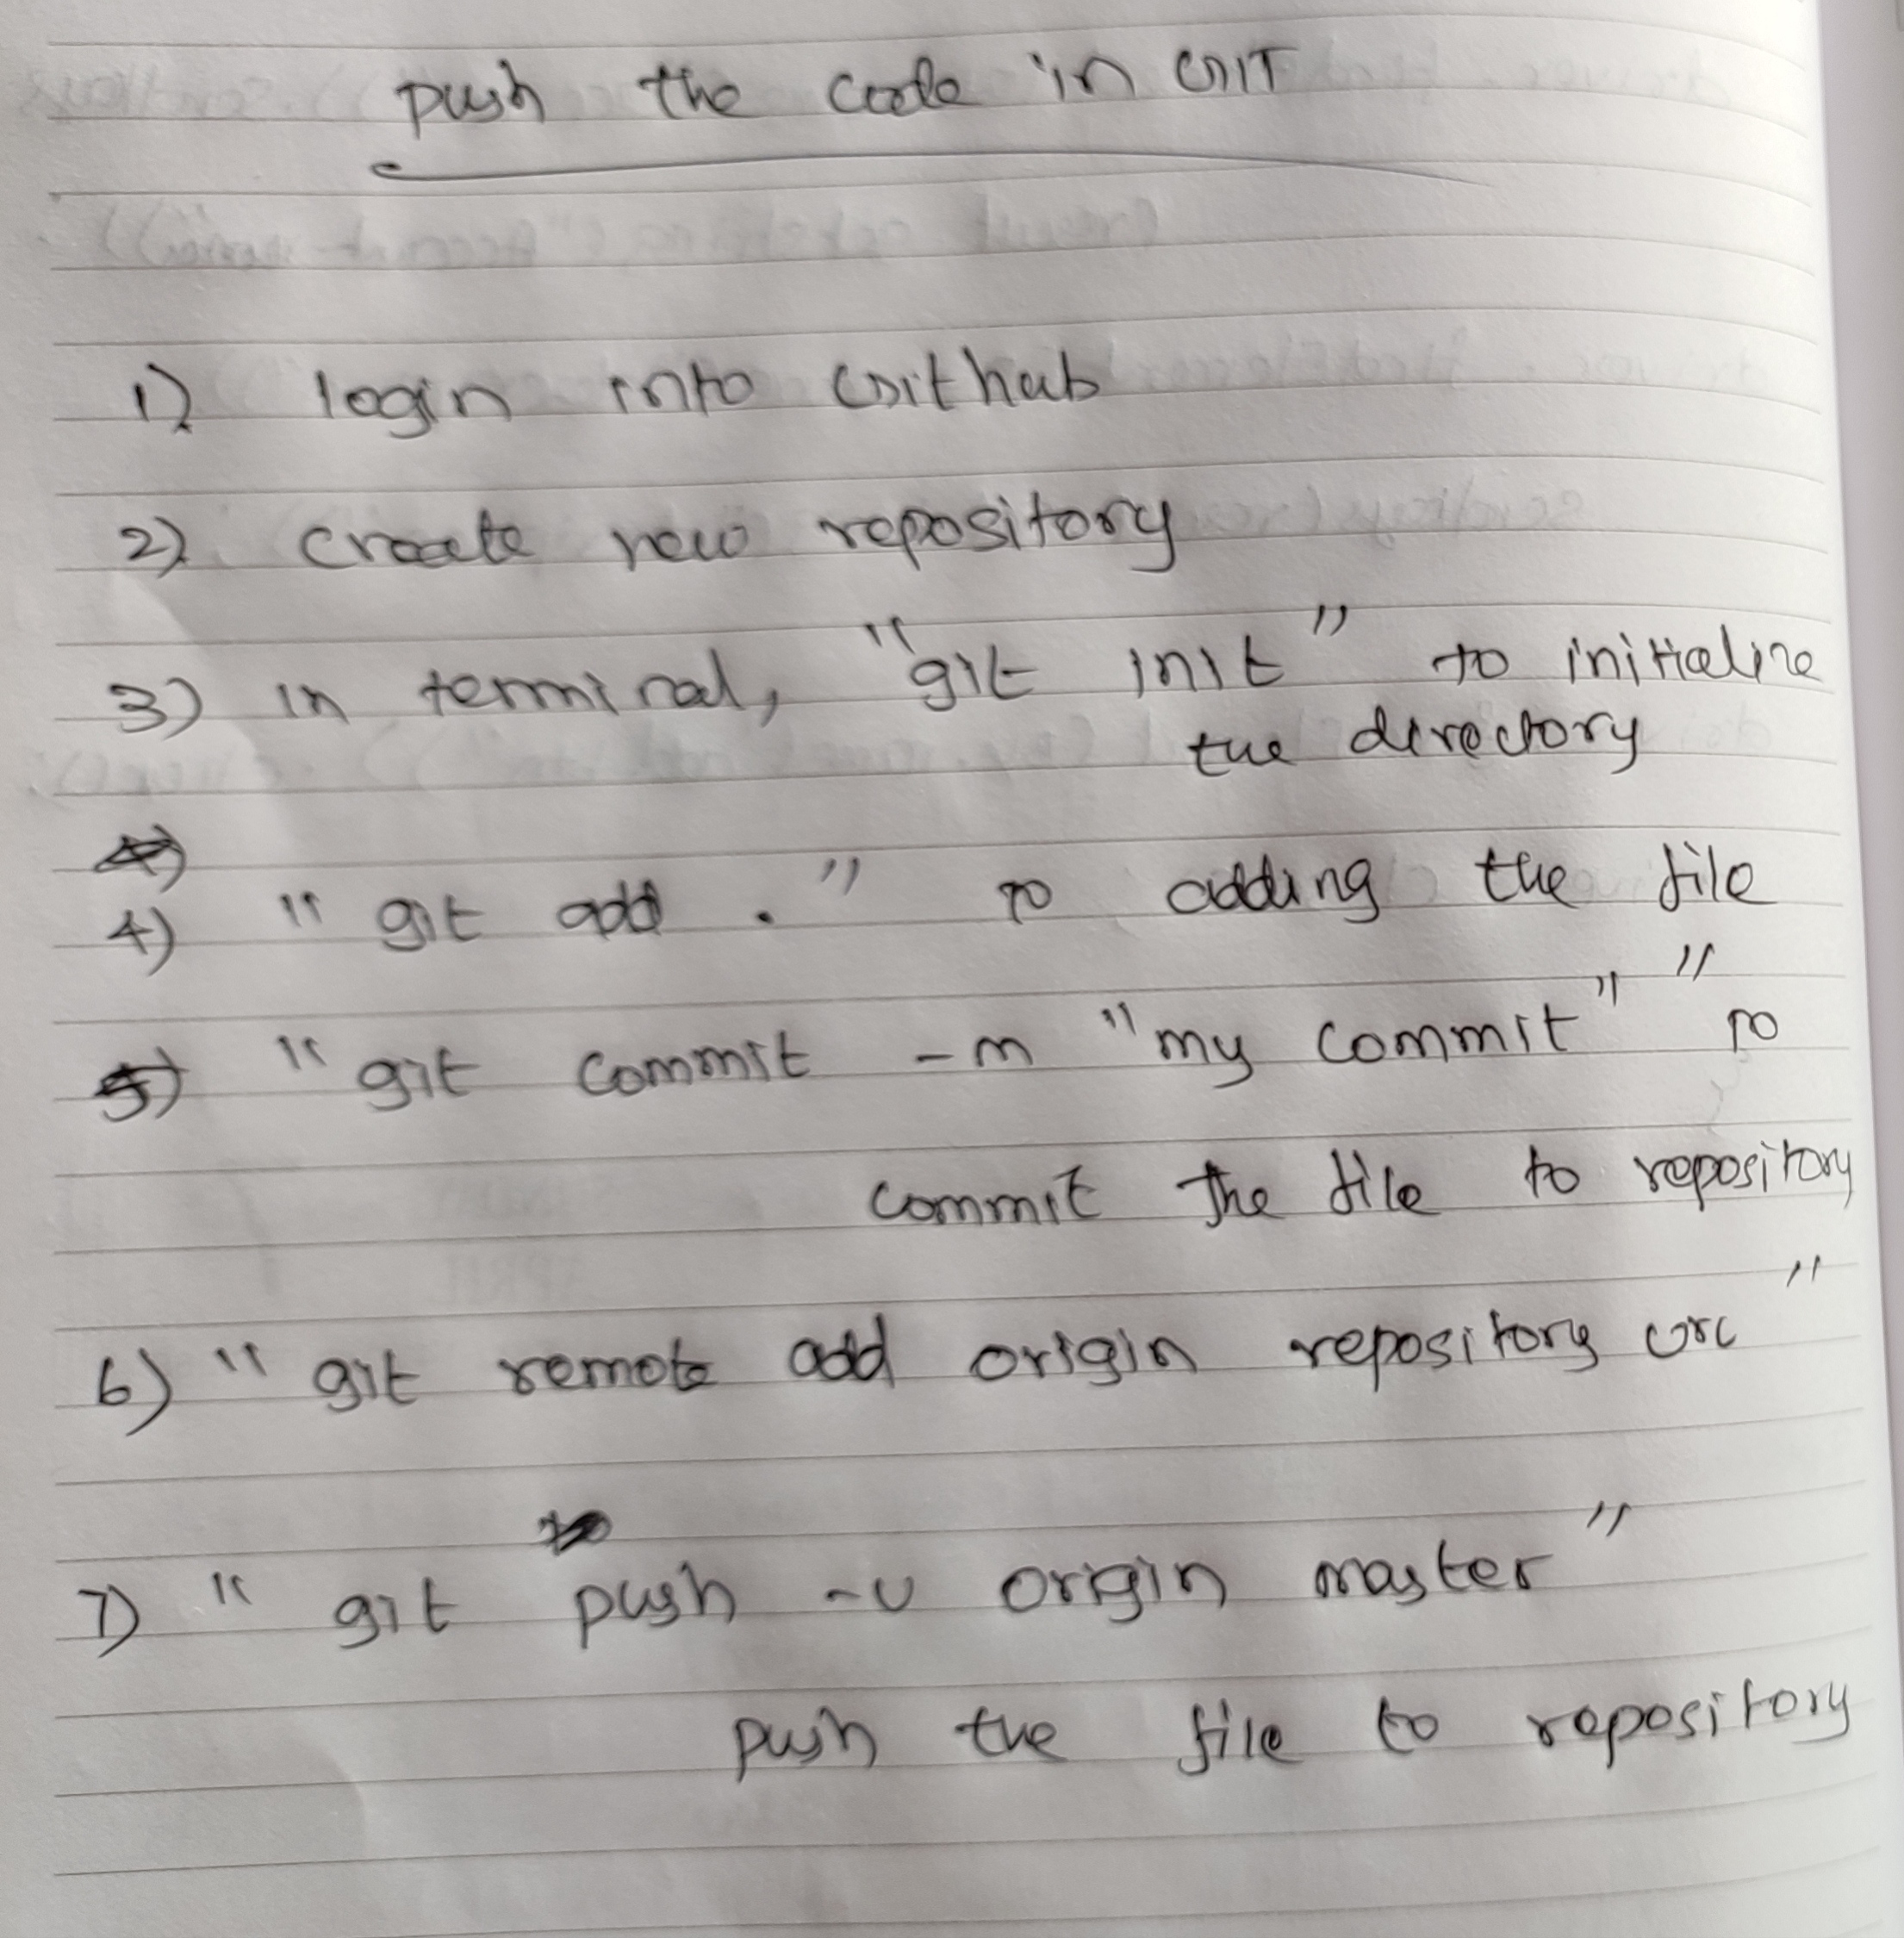 push the code in GIT
1) login into Github
2) create new repository
3) in terminal, "git init" to initialize
the directory
4) "git add . " to adding the file
5) "git commit -m "my commit" " to
commit the file to repository
6) "git remote add origin repository url "
7) "git push -u origin master "
push the file to repository